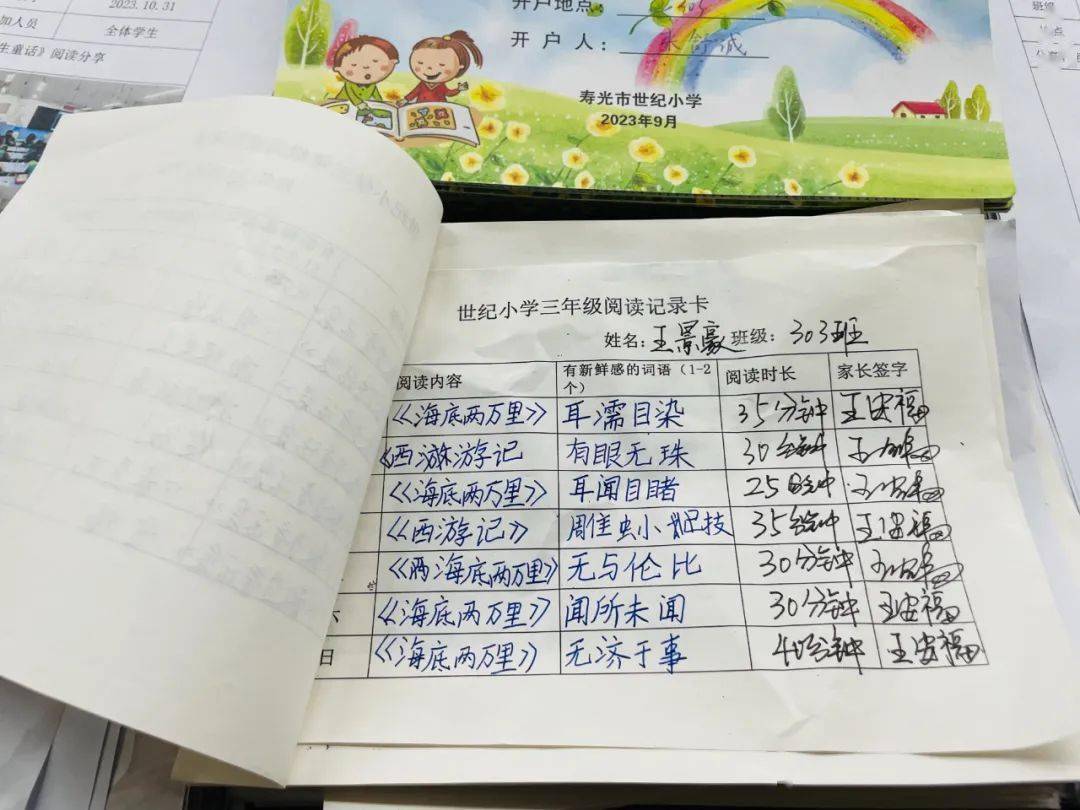 2023.10.31
加人员 全体学生
生童话》阅读分享
开户地点:
开 户 人:
寿光市世纪小学
2023年9月
班级
世纪小学三年级阅读记录卡
姓名: 王景豪 班级: 303班
阅读内容 有新鲜感的词语（1-2个） 阅读时长 家长签字
《海底两万里》 耳濡目染 35分钟 王安福
西游游记 有眼无珠 30分钟
《海底两万里》 耳闻目睹 25分钟
《西游记》 雕虫小技 35分钟 王安福
《西海底两万里》 无与伦比 30分钟
六 《海底两万里》 闻所未闻 30分钟 王安福
日 《海底两万里》 无济于事 40分钟 王安福